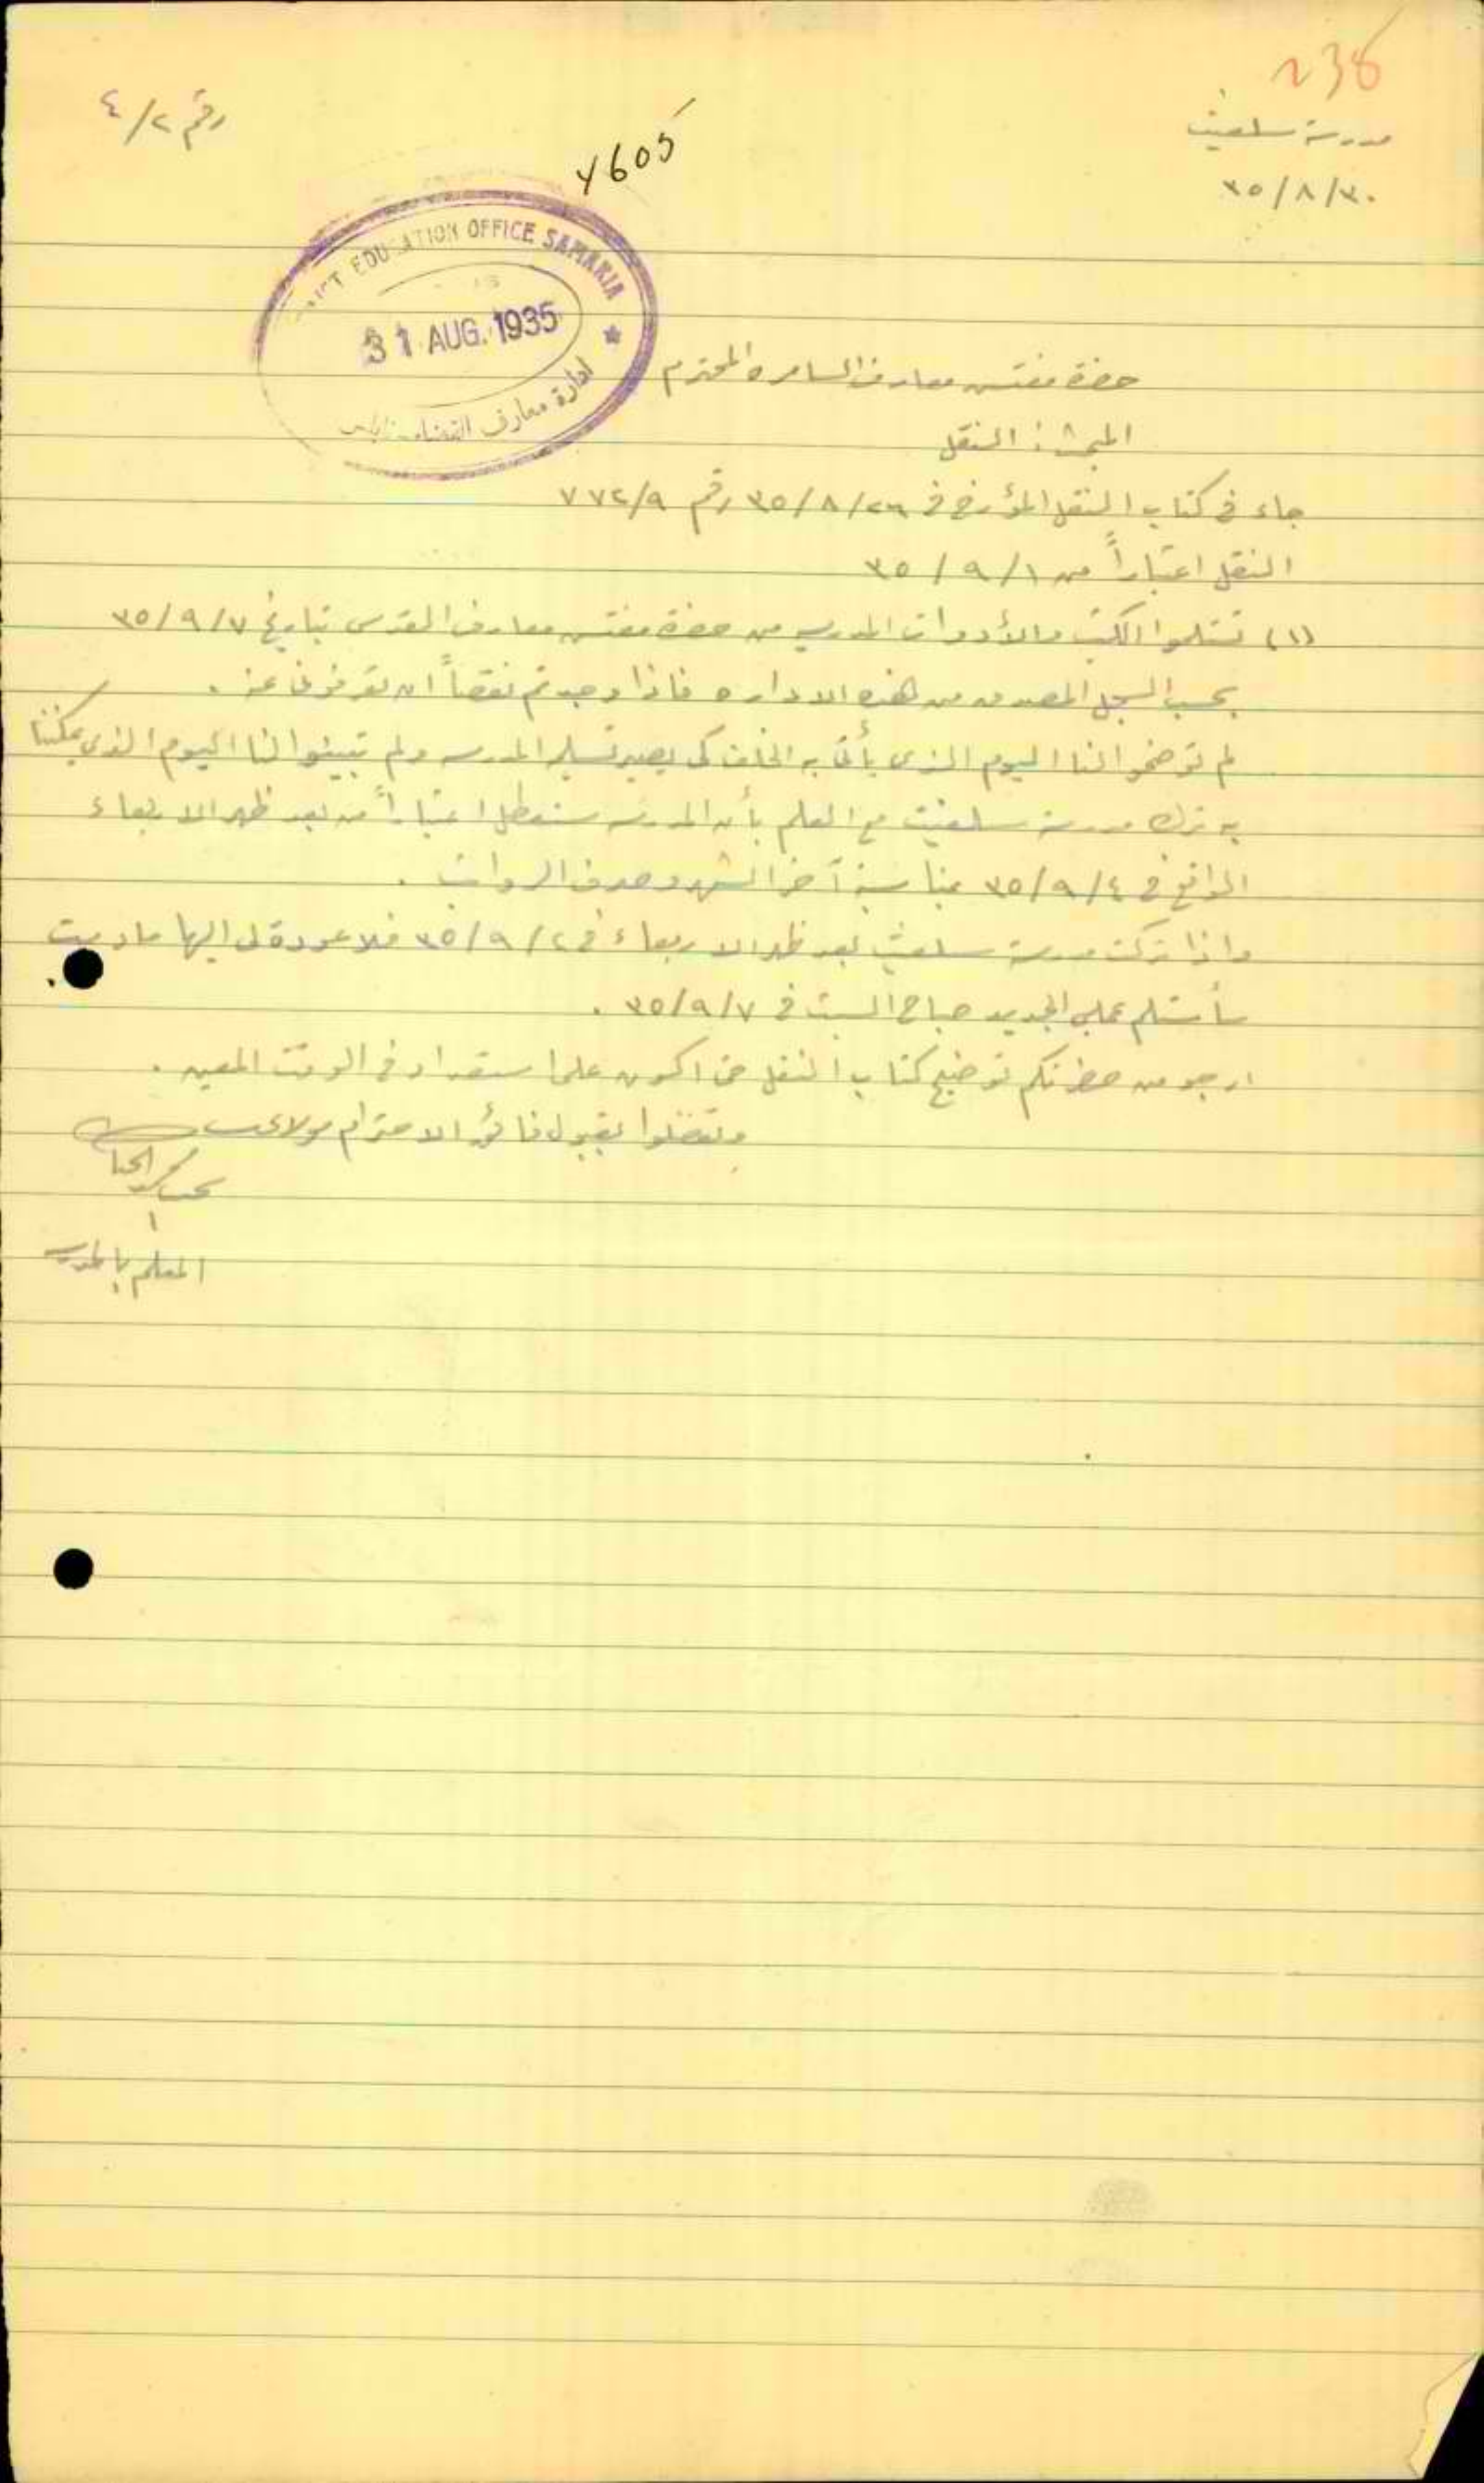 238
مدرسة سلفيت
٣٥/٨/٣٠
رقم ٤/٢
4605
EDUCATION OFFICE SAMARIA
31 AUG. 1935
ادارة معارف
حضرة مفتش معارف السامره المحترم
المبحث : النقل
جاء في كتاب النقل المؤرخ في ٣٥/٨/٢٦ رقم ٧٧٢/٩
النقل اعتباراً من ٣٥/٩/١
(١) تستلموا الكتب والأدوات المدرسيه من حضرة مفتش معارف القدس بتاريخ ٣٥/٩/٧
بحسب السجل المصدق من هذه الاداره فاذا وجدتم نقصاً ان تعرفوني عنه .
لم توضحوا لنا اليوم الذي يأتي به الخلف كي يصير تسليم المدرسه ولم تبينوا لنا اليوم الذي يمكننا
به ترك مدرسة سلفيت مع العلم بأن المدرسه ستعطل اعتباراً من بعد ظهر الاربعاء
الواقع في ٣٥/٩/٤ بمناسبة آخر الشهر وصرف الرواتب .
واذا تركت مدرسة سلفيت بعد ظهر الاربعاء في ٣٥/٩/٤ فلا عودة لي اليها ما دمت
سأستلم عملي الجديد صباح السبت في ٣٥/٩/٧ .
ارجو من حضرتكم توضيح كتاب النقل حتى اكون على استعداد في الوقت المعين .
وتفضلوا بقبول فائق الاحترام مولاي
المعلم بالمدرسه